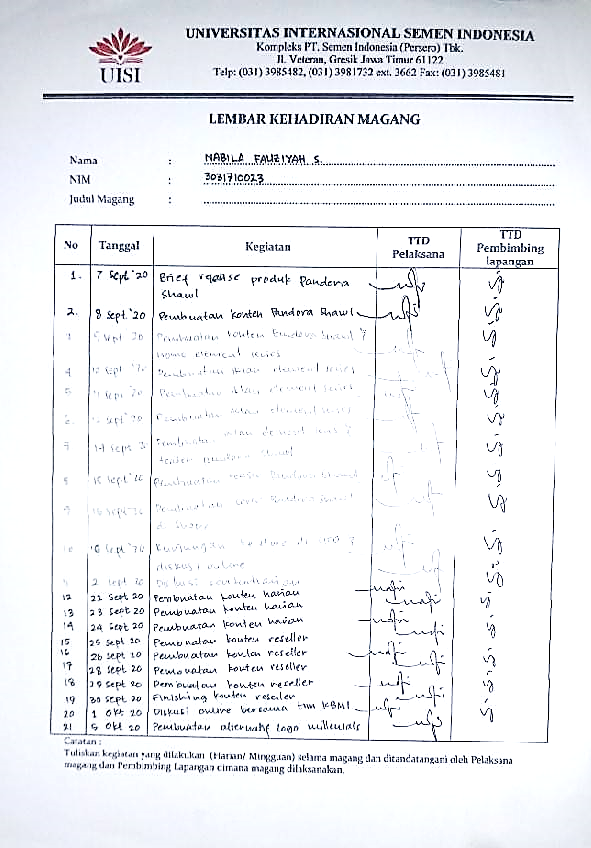 UISI
UNIVERSITAS INTERNASIONAL SEMEN INDONESIA
Kompleks PT. Semen Indonesia (Persero) Tbk.
Jl. Veteran, Gresik Jawa Timur 61122
Telp: (031) 3985482, (031) 3981732 ext. 3662 Fax: (031) 3985481
LEMBAR KEHADIRAN MAGANG
Nama : NABILA FAUZIYAH S.
NIM : 3031710023
Judul Magang :
No Tanggal Kegiatan TTD Pelaksana TTD Pembimbing lapangan
1. 7 Sept '20 Brief release produk Pandora
Shawl
2. 8 Sept. '20 Pembuatan konten Pandora Shawl
3 9 Sept 20 Pembuatan konten Pandora Shawl
home element series
4 Sept '20 Pembuatan iklan element series
5 Sept '20 Pembuatan iklan element series
6 Sept '20 Pembuatan iklan element series
7 14 Sept Pembuatan iklan element series
konten Pandora Shawl
8 15 Sept '20 Pembuatan Pandora Shawl
9 Sept 20 Pembuatan Pandora Shawl
di
10 Sept '20 Kunjungan
diskusi online
2 Sept 20 Diskusi
12 22 Sept 20 Pembuatan konten harian
13 23 Sept 20 Pembuatan konten harian
14 24 Sept 20 Pembuatan konten harian
15 25 Sept 20 Pembuatan konten reseller
16 26 Sept 20 Pembuatan konten reseller
17 28 Sept 20 Pembuatan konten reseller
18 29 Sept 20 Pembuatan konten reseller
19 30 Sept 20 Finishing konten reseller
20 1 Okt 20 Diskusi online bersama tim KBMI
21 5 Okt 20 Pembuatan alternatif logo millenials
Catatan :
Tuliskan kegiatan yang dilakukan (Harian/ Mingguan) selama magang dan ditandatangani oleh Pelaksana
magang dan Pembimbing Lapangan dimana magang dilaksanakan.